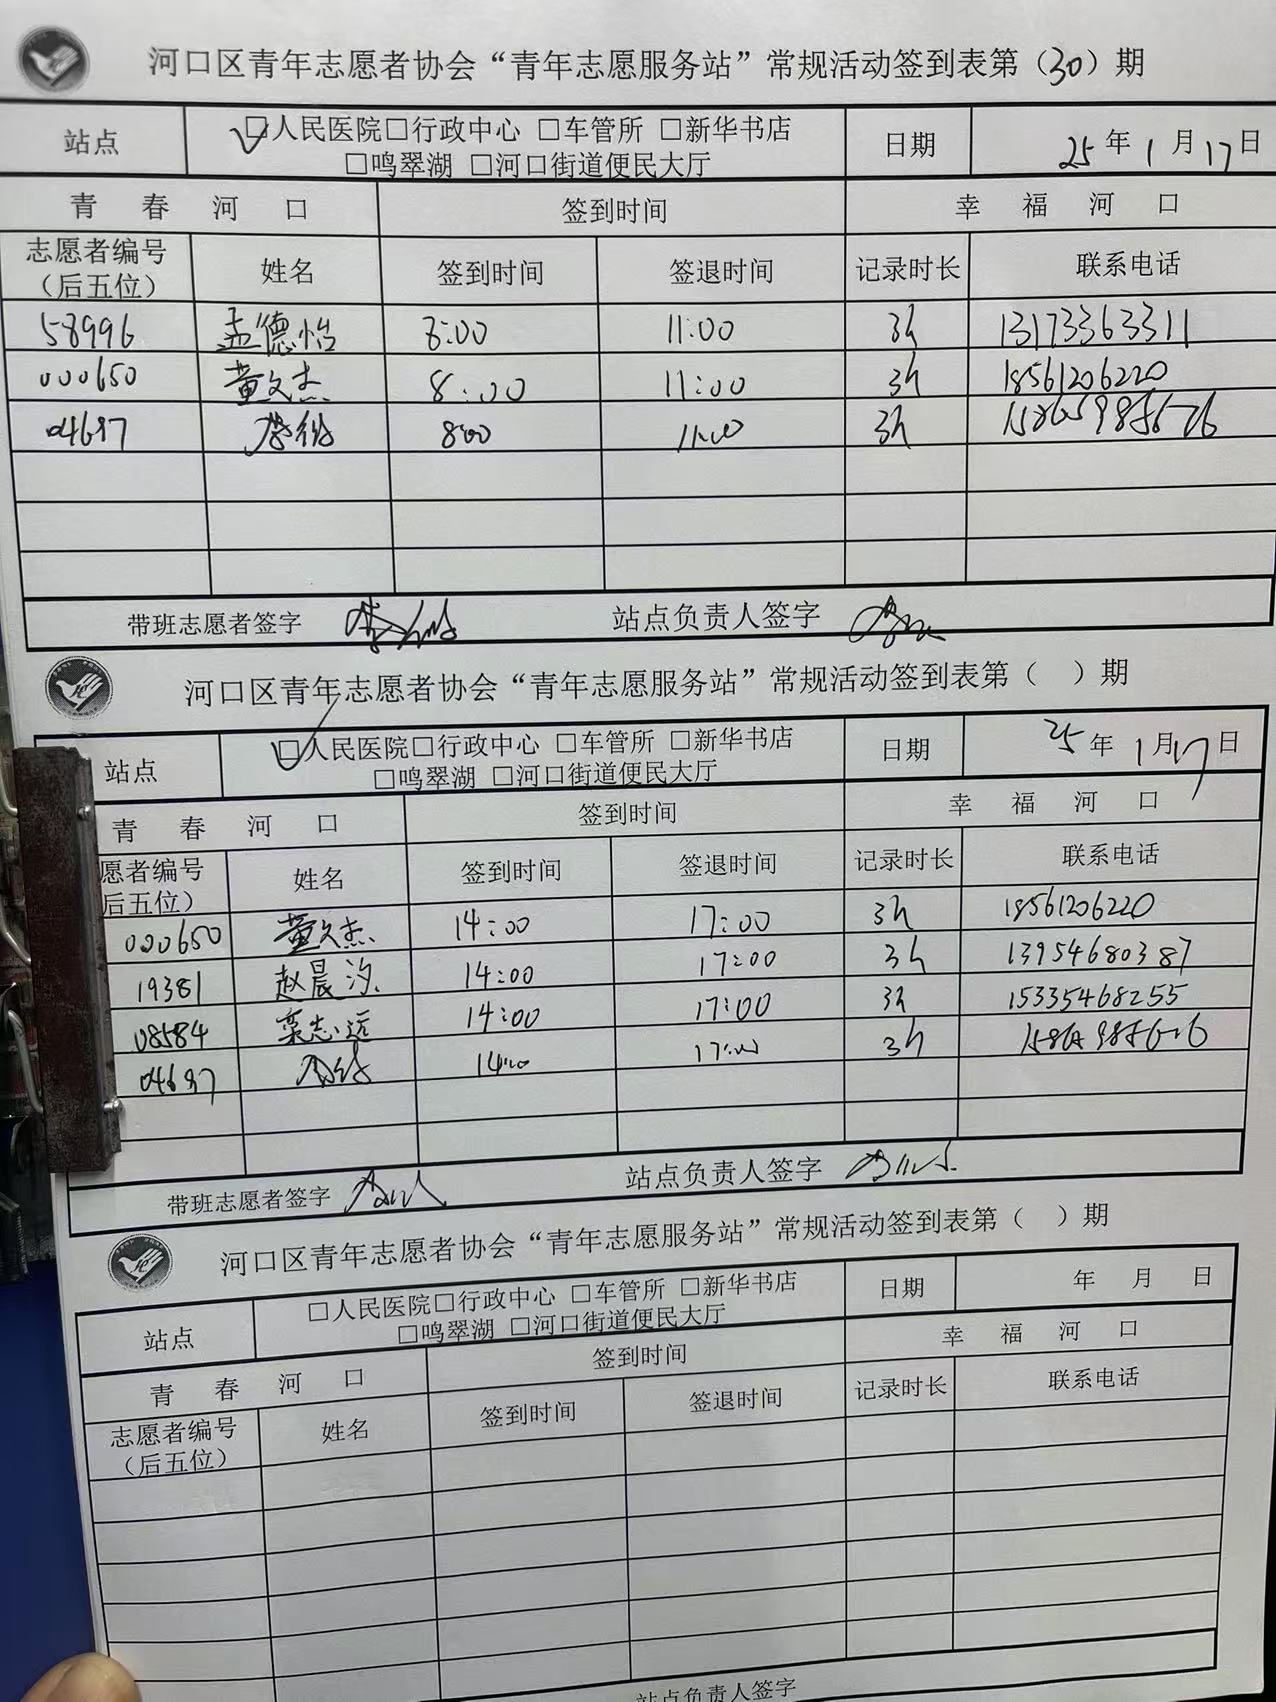 河口区青年志愿者协会“青年志愿服务站”常规活动签到表第（30）期
站点 □人民医院□行政中心 □车管所 □新华书店 日期 25年1月17日
□鸣翠湖 □河口街道便民大厅
青 春 河 口 签到时间 幸 福 河 口
志愿者编号 姓名 签到时间 签退时间 记录时长 联系电话
（后五位）
58996 孟德怡 8:00 11:00 3h 13173363311
000650 董文杰 8:00 11:00 3h 18561206220
04697 8:00 11:00 3h
带班志愿者签字 站点负责人签字
河口区青年志愿者协会“青年志愿服务站”常规活动签到表第（ ）期
站点 □人民医院□行政中心 □车管所 □新华书店 日期 25年1月17日
□鸣翠湖 □河口街道便民大厅
青 春 河 口 签到时间 幸 福 河 口
愿者编号 姓名 签到时间 签退时间 记录时长 联系电话
后五位）
000650 董文杰 14:00 17:00 3h 18561206220
19381 赵晨汐 14:00 17:00 3h 13954680387
08584 栾志远 14:00 17:00 3h 15335468255
04697 14:00 17:00 3h
带班志愿者签字 站点负责人签字
河口区青年志愿者协会“青年志愿服务站”常规活动签到表第（ ）期
站点 □人民医院□行政中心 □车管所 □新华书店 日期 年 月 日
□鸣翠湖 □河口街道便民大厅
青 春 河 口 签到时间 幸 福 河 口
志愿者编号 姓名 签到时间 签退时间 记录时长 联系电话
（后五位）
站点负责人签字